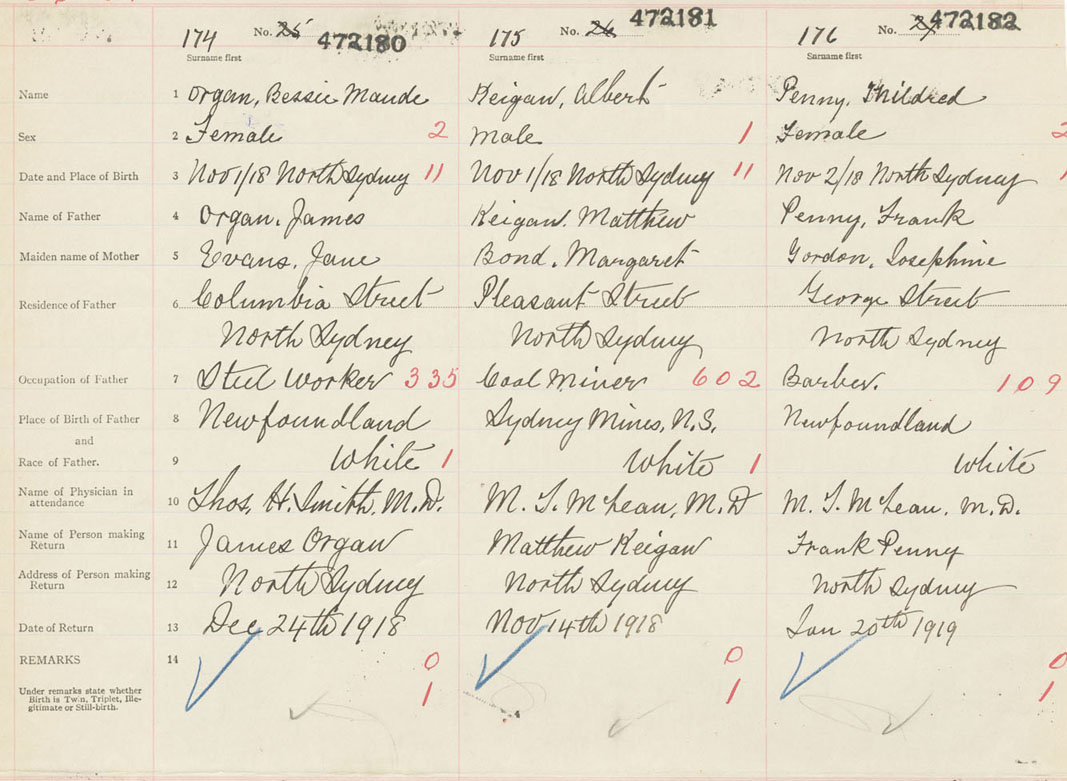 174 No. 25 472180 175 No. 26 472181 176 No. 27 472182
Surname first Surname first Surname first
Name 1 Organ, Bessie Maude Keigan, Albert Penny, Mildred
Sex 2 Female 2 Male 1 Female 2
Date and Place of Birth 3 Nov 1/18 North Sydney 11 Nov 1/18 North Sydney 11 Nov 2/18 North Sydney
Name of Father 4 Organ, James Keigan, Matthew Penny, Frank
Maiden name of Mother 5 Evans, Jane Bond, Margaret Gordon, Josephine
Residence of Father 6 Columbia Street Pleasant Street George Street
North Sydney North Sydney North Sydney
Occupation of Father 7 Steel Worker 335 Coal Miner 602 Barber. 109
Place of Birth of Father 8 Newfoundland Sydney Mines, N.S. Newfoundland
and
Race of Father. 9 White 1 White 1 White
Name of Physician in
attendance 10 Thos. H. Smith, M.D. M. T. McLean, M.D M. T. McLean, M.D.
Name of Person making
Return 11 James Organ Matthew Keigan Frank Penny
Address of Person making
Return 12 North Sydney North Sydney North Sydney
Date of Return 13 Dec 24th 1918 Nov 14th 1918 Jan 20th 1919
REMARKS 14 0 0 0
Under remarks state whether
Birth is Twin, Triplet, Ille-
gitimate or Still-birth. 1 1 1